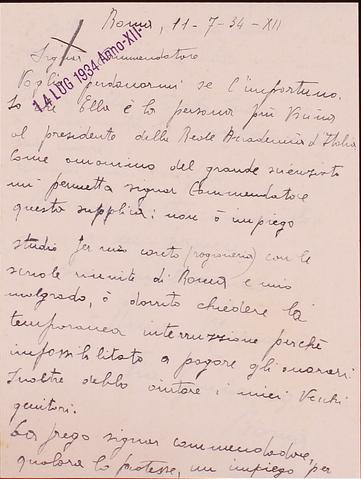 Roma, 11-7-34-XII
Signor Commendatore
14 LUG 1934 Anno XII
Voglia perdonarmi se l'importuno.
So che Ella è la persona più vicina
al presidente della Reale Accademia d'Italia
Come omonimo del grande scienziato
mi permetta signor Commendatore
questa supplica: non ò impiego
studio per mio conto (ragioneria) con le
scuole riunite di Roma e mio
malgrado, ò dovuto chiedere la
temporanea interruzione perchè
impossibilitato a pagare gli onorari
Inoltre debbo aiutare i miei vecchi
genitori.
La prego signor commendatore,
qualora lo potesse, un impiego per